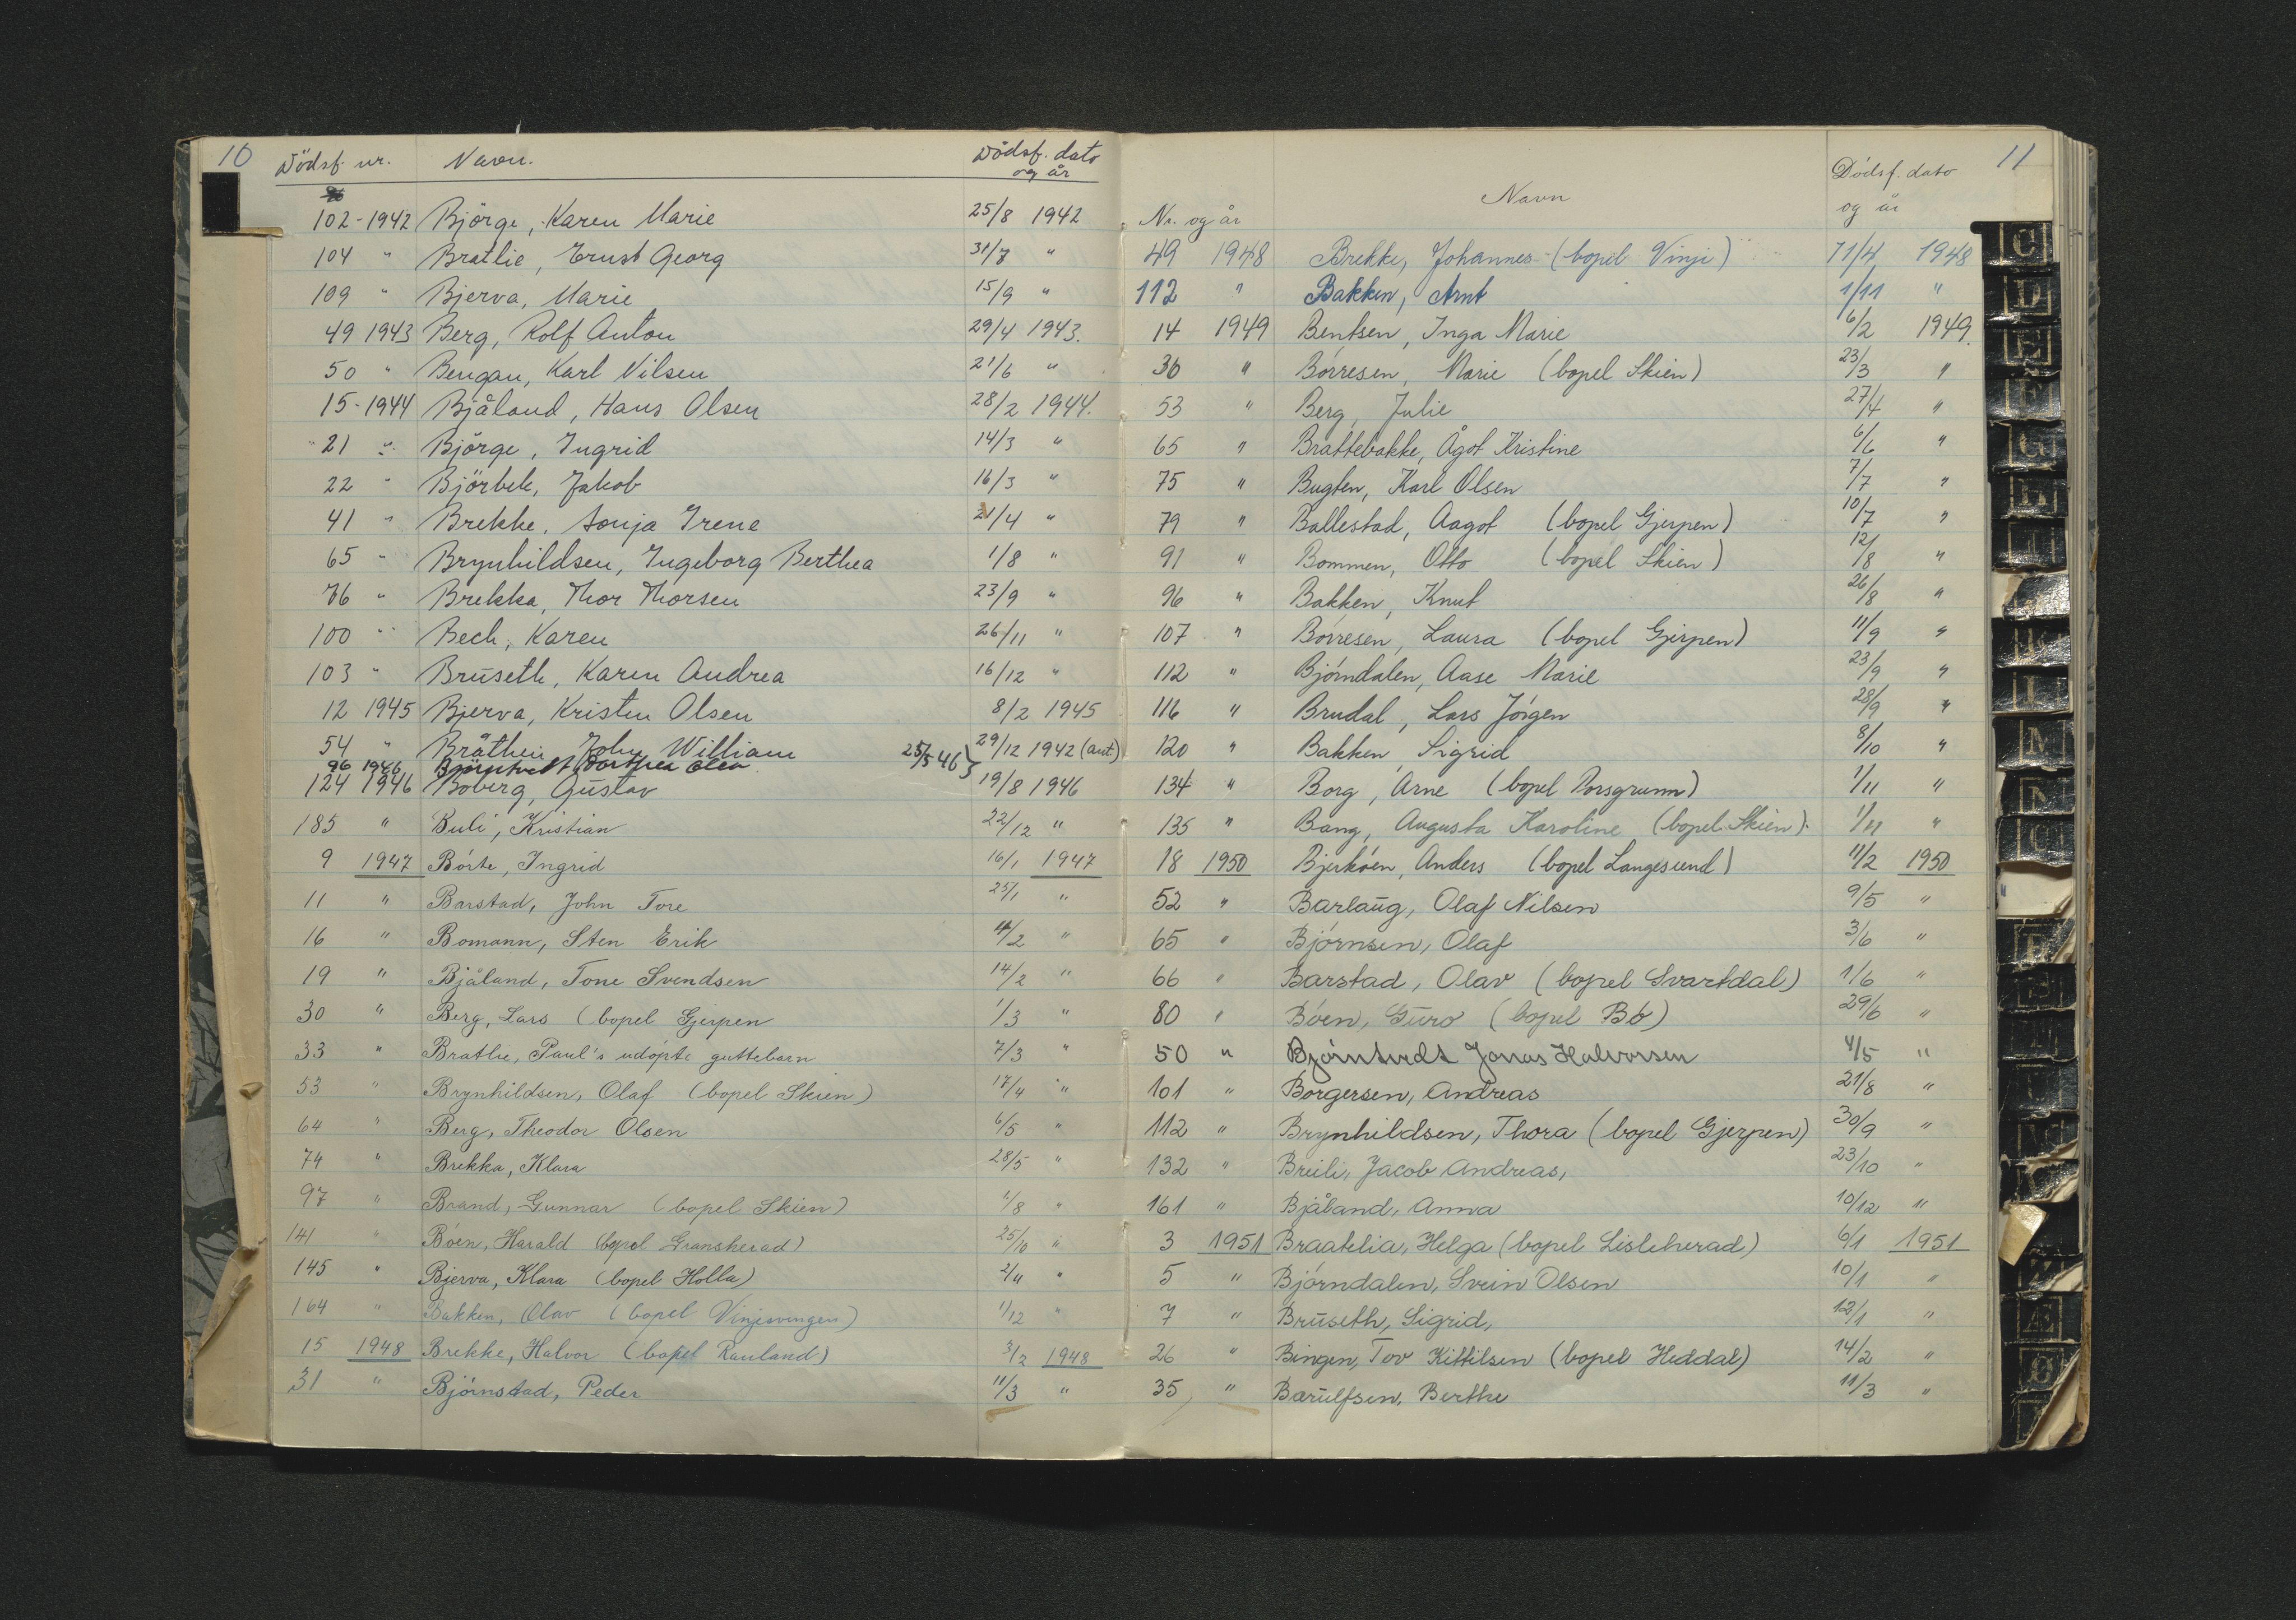 10
Dödsf. nr. Navn. Dödsf. dato
og år
102-1942 Björge, Karen Marie 25/8 1942
104 " Bratlie, Ernst Georg 31/7 "
109 " Bjerva, Marie 15/9 "
49 1943 Berg, Rolf Anton 29/4 1943.
50 " Bengan, Karl Nilsen 21/6 "
15-1944 Bjåland, Hans Olsen 28/2 1944.
21 " Björge, Ingrid 14/3 "
22 " Björbek, Jakob 16/3 "
41 " Brekke, Sonja Irene 21/4 "
65 " Brynhildsen, Ingeborg Berthea 1/8 "
76 " Brekka, Thor Thorsen 23/9 "
100 " Bech, Karen 26/11 "
103 " Bruseth, Karen Andrea 16/12 "
12 1945 Bjerva, Kristen Olsen 8/2 1945
54 " Bråthen John William 29/12 1942 (ant)
96 1946 Björntvedt Dorthea Olea 25/5 46
124 1946 Boberg, Gustav 19/8 1946
185 " Buli, Kristian 22/12 "
9 1947 Börte, Ingrid 16/1 1947
11 " Barstad, John Tore 25/1 "
16 " Bomann, Sten Erik /2 "
19 " Bjåland, Tone Svendsen 14/2 "
30 " Berg, Lars (bopel Gjerpen 1/3 "
33 " Bratlie, Paul's udöpte guttebarn 7/3 "
53 " Brynhildsen, Olaf (bopel Skien) 17/4 "
64 " Berg, Theodor Olsen 6/5 "
74 " Brekka, Klara 28/5 "
97 " Brand, Gunnar (bopel Skien) 1/8 "
141 " Böen, Harald (bopel Gransherad) 25/10 "
145 " Bjerva, Klara (bopel Holla) 2/11 "
164 " Bakken, Olav (bopel Vinjesvingen) 1/12 "
15 1948 Brekke, Halvor (bopel Rauland) 3/2 1948
31 " Björnstad, Peder 11/3 "
11
Nr. og år Navn Dödsf. dato
og år
49 1948 Brekke, Johannes (bopel Vinje) 11/4 1948
112 " Bakken, Arnt 1/11 "
14 1949 Bentsen, Inga Marie 6/2 1949.
30 " Börresen, Marie (bopel Skien) 23/3 "
53 " Berg, Julie 27/4 "
65 " Brattebakke, Ågot Kristine 6/6 "
75 " Bugten, Karl Olsen 7/7 "
79 " Ballestad, Aagot (bopel Gjerpen) 10/7 "
91 " Bommen, Otto (bopel Skien) 12/8 "
96 " Bakken, Knut 26/8 "
107 " Börresen, Laura (bopel Gjerpen) 11/9 "
112 " Björndalen, Aase Marie 23/9 "
116 " Brudal, Lars Jörgen 28/9 "
120 " Bakken, Sigrid 8/10 "
134 " Borg, Arne (bopel Porsgrunn) 1/11 "
135 " Bang, Augusta Karoline (bopel Skien). 1/11 "
18 1950 Bjerköen, Anders (bopel Langesund) 11/2 1950
52 " Barlaug, Olaf Nilsen 9/5 "
65 " Björnsen, Olaf 3/6 "
66 " Barstad, Olav (bopel Svartdal) 1/6 "
80 " Böen, Guro (bopel Bö) 29/6 "
50 " Björntvedt Jonas Halvorsen 4/5 "
101 " Borgersen, Andreas 21/8 "
112 " Brynhildsen, Thora (bopel Gjerpen) 30/9 "
132 " Breili, Jacob Andreas, 23/10 "
161 " Bjåland, Anna 10/12 "
3 1951 Braatelia, Helga (bopel Lisleherad) 6/1 1951
5 " Björndalen, Svein Olsen 10/1 "
7 " Bruseth, Sigrid, 12/1 "
26 " Bingen, Tov Kittilsen (bopel Heddal) 14/2 "
35 " Bærulfsen, Berthe 11/3 "
C
D
E
F
G
H
I
L
M
N
O
P
R
U
Æ
Ø